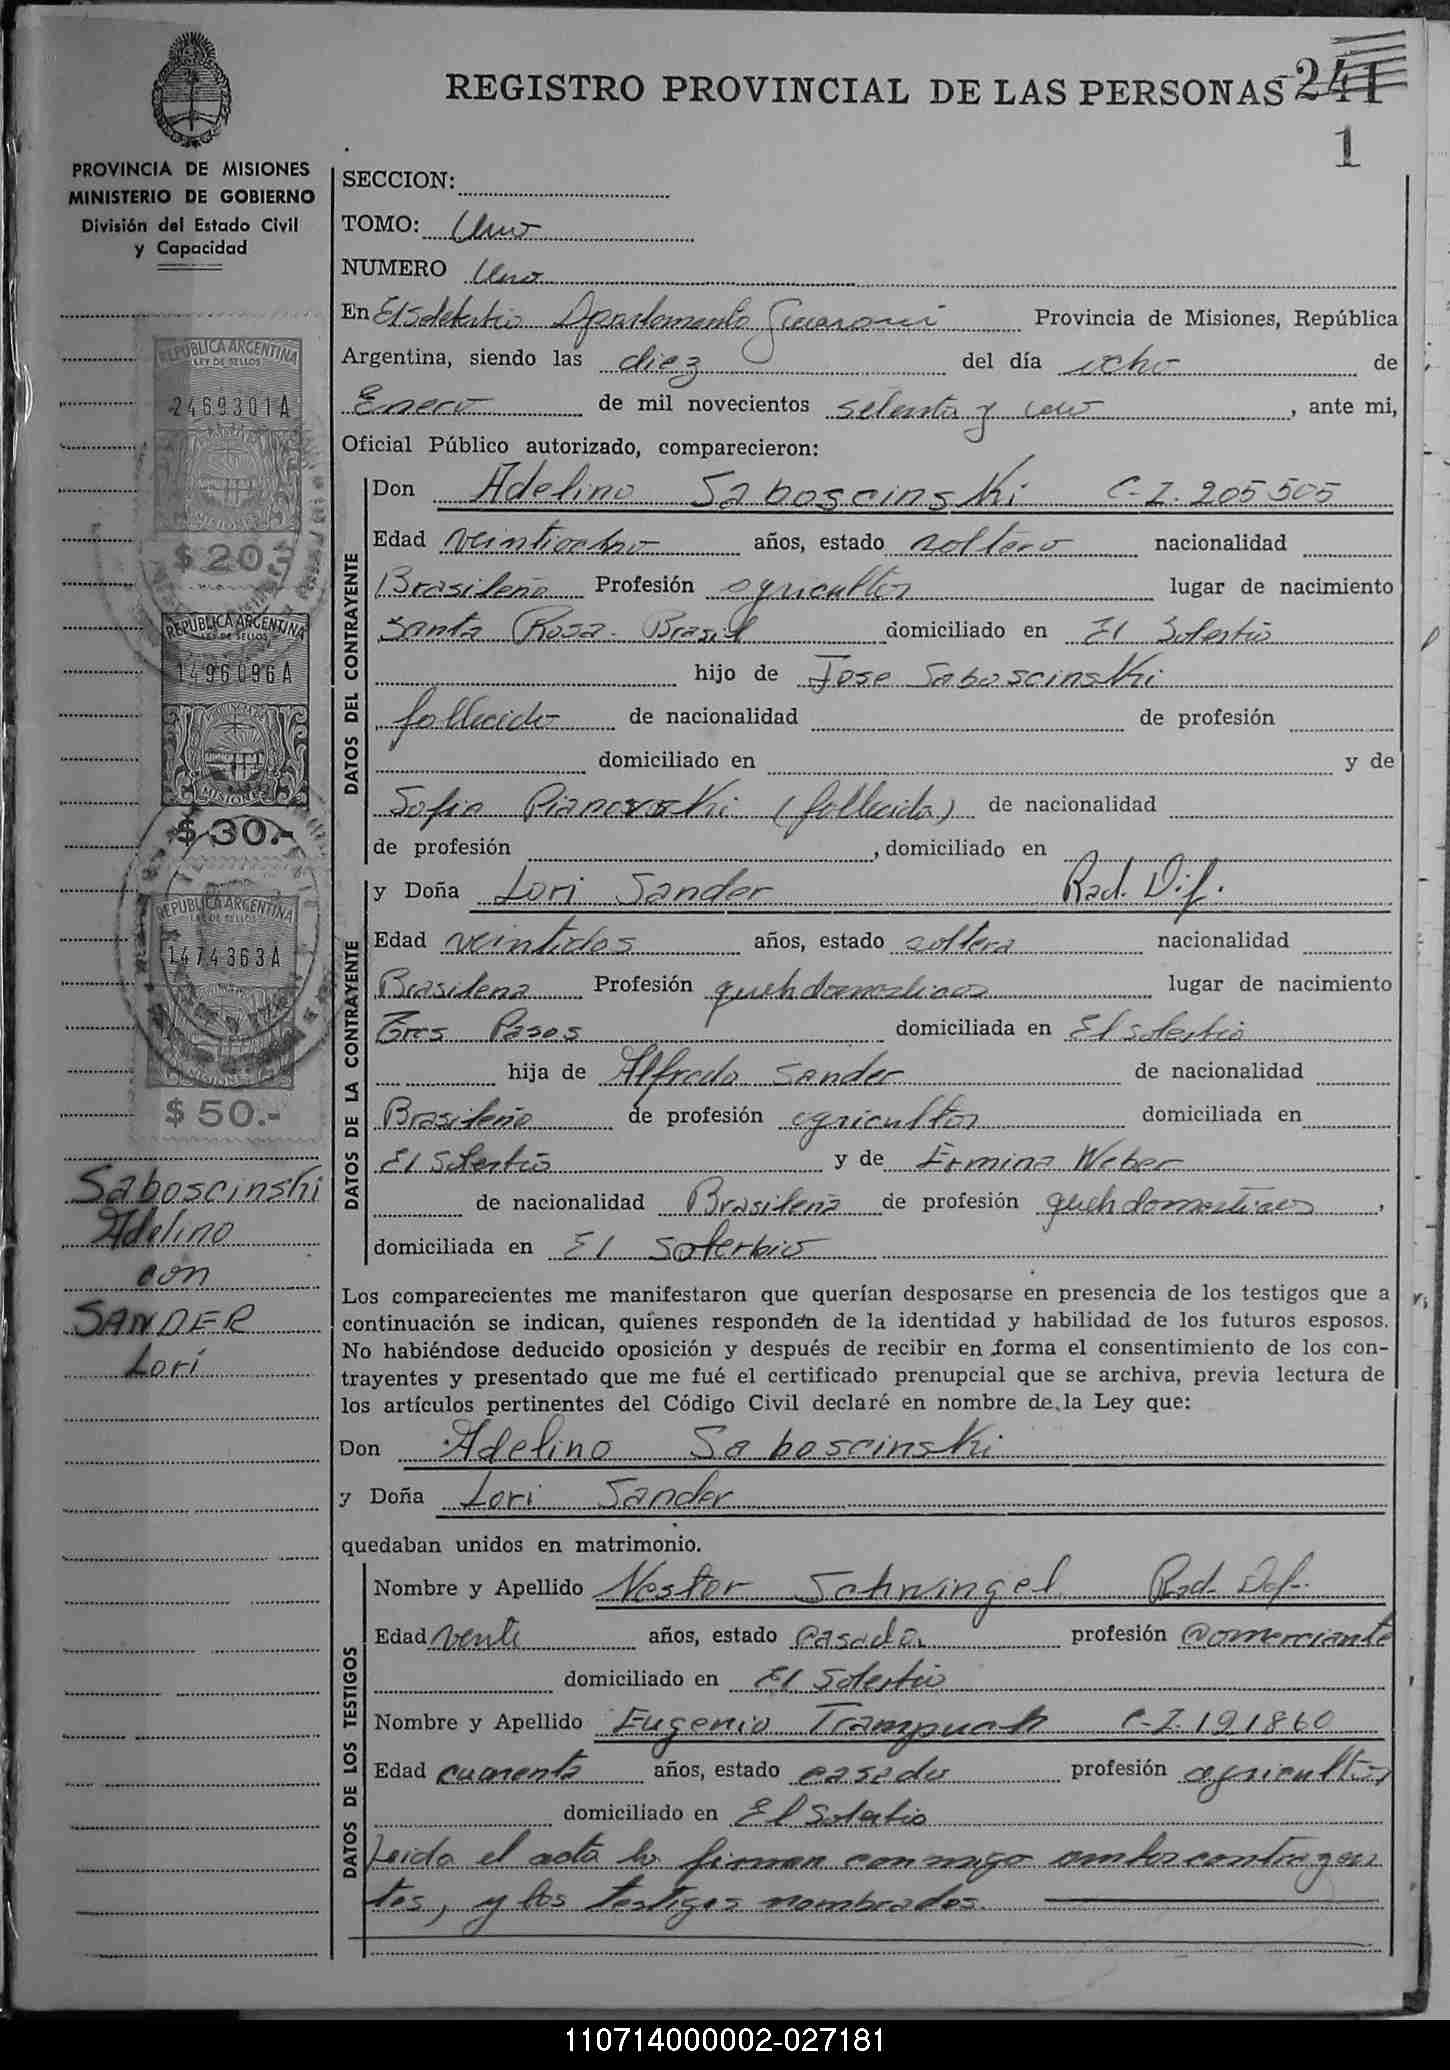 REGISTRO PROVINCIAL DE LAS PERSONAS 241
1
PROVINCIA DE MISIONES
MINISTERIO DE GOBIERNO
División del Estado Civil
y Capacidad
SECCION:
TOMO: Uno
NUMERO Uno
En El Soberbio Departamento Guaraní Provincia de Misiones, República
Argentina, siendo las diez del día ocho de
Enero de mil novecientos setenta y uno, ante mi,
Oficial Público autorizado, comparecieron:
DATOS DEL CONTRAYENTE
Don Adelino Saboscinski C-I. 205505
Edad veintiocho años, estado soltero nacionalidad
Brasileño Profesión agricultor lugar de nacimiento
Santa Rosa - Brasil domiciliado en El Soberbio
hijo de Jose Saboscinski
fallecido de nacionalidad de profesión
domiciliado en y de
Sofia Pianovski (fallecida) de nacionalidad
de profesión , domiciliado en
DATOS DE LA CONTRAYENTE
y Doña Lori Sander Rad. Dif.
Edad veintidos años, estado soltera nacionalidad
Brasilena Profesión queh domesticos lugar de nacimiento
Tres Pasos domiciliada en El Soberbio
hija de Alfredo Sander de nacionalidad
Brasileño de profesión agricultor domiciliada en
El Soberbio y de Ermina Weber
de nacionalidad Brasileña de profesión queh domesticos,
domiciliada en El Soberbio
Los comparecientes me manifestaron que querían desposarse en presencia de los testigos que a
continuación se indican, quienes responden de la identidad y habilidad de los futuros esposos.
No habiéndose deducido oposición y después de recibir en forma el consentimiento de los con-
trayentes y presentado que me fué el certificado prenupcial que se archiva, previa lectura de
los artículos pertinentes del Código Civil declaré en nombre de la Ley que:
Don Adelino Saboscinski
y Doña Lori Sander
quedaban unidos en matrimonio.
DATOS DE LOS TESTIGOS
Nombre y Apellido Nestor Schwingel Rad. Def.
Edad veinte años, estado casado profesión Comerciante
domiciliado en El Soberbio
Nombre y Apellido Eugenio Trampusch C-I. 191860
Edad cuarenta años, estado casado profesión agricultor
domiciliado en El Soberbio
Leida el acta la firman conmigo ambos contrayen
tes, y los testigos nombrados.
REPUBLICA ARGENTINA
LEY DE SELLOS
2469301A
MISIONES
$ 20.-
REPUBLICA ARGENTINA
LEY DE SELLOS
1496096A
MISIONES
$ 30.-
REPUBLICA ARGENTINA
LEY DE SELLOS
1474363A
MISIONES
$ 50.-
Saboscinski
Adelino
con
SANDER
Lori
110714000002-027181